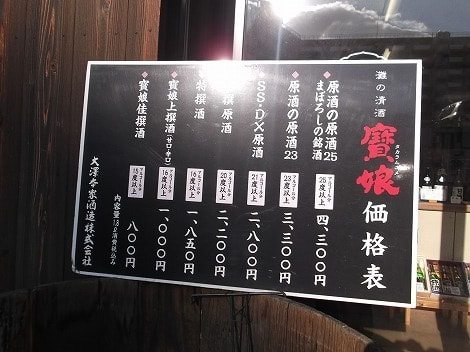 灘の清酒
寶娘
タカラムスメ
価格表
原酒の原酒25
まぼろしの銘酒
アルコール分
25度以上
四、三〇〇円
原酒の原酒23
アルコール分
23度以上
三、三〇〇円
SS・DX原酒
アルコール分
21度以上
二、八〇〇円
撰原酒
アルコール分
20度以上
二、二〇〇円
特撰酒
アルコール分
16度以上
一、八五〇円
寶娘上撰酒(甘口・辛口)
アルコール分
16度以上
一、〇〇〇円
寶娘佳撰酒
アルコール分
15度以上
八〇〇円
内容量1.8ℓ消費税込み
大澤本家酒造株式会社